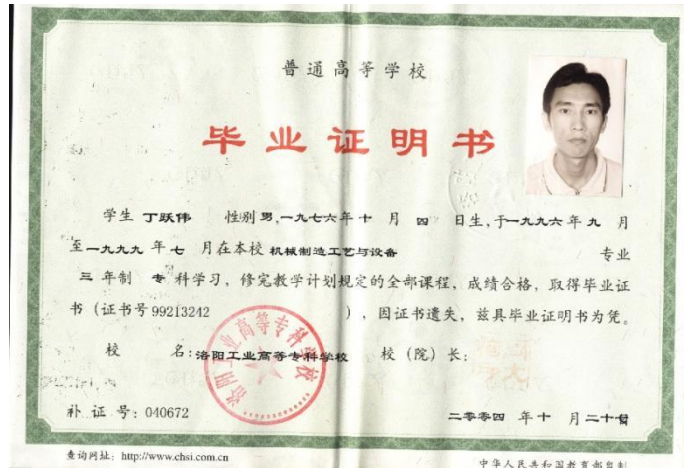 普通高等学校
毕业证明书
学生 丁跃伟 性别 男,一九七六年 十 月 四 日生,于一九九六年 九 月
至一九九九 年 七 月在本校 机械制造工艺与设备 专业
三 年制 专 科学习，修完教学计划规定的全部课程，成绩合格，取得毕业证
书（证书号 99213242 ），因证书遗失，兹具毕业证明书为凭。
校 名:洛阳工业高等专科学校 校（院）长:
洛阳工业高等专科学校
补 证 号: 040672 二零零四 年 十 月 二十日
查询网址: http://www.chsi.com.cn 中华人民共和国教育部监制